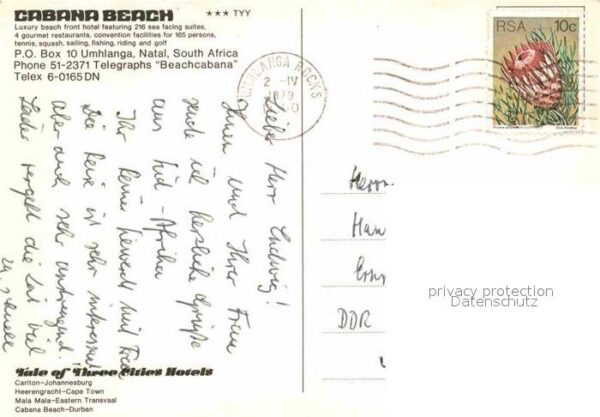 CABANA BEACH ★★★ TYY
Luxury beach front hotel featuring 216 sea facing suites,
4 gourmet restaurants, convention facilities for 165 persons,
tennis, squash, sailing, fishing, riding and golf
P.O. Box 10 Umhlanga, Natal, South Africa
Phone 51-2371 Telegraphs "Beachcabana"
Telex 6-0165DN
UMHLANGA ROCKS
2 -IV
1979
RSA 10c
Lieber Herr Ludwig!
Ihnen und Ihrer Frau
sende ich herzliche Grüße
aus Süd-Afrika
Die Reise ist sehr interessant
aber auch sehr anstrengend.
Leider vergeht die Zeit viel
zu schnell
Herrn
DDR
privacy protection
Datenschutz
Tale of Three Cities Hotels
Carlton-Johannesburg
Heerengracht-Cape Town
Mala Mala-Eastern Transvaal
Cabana Beach-Durban